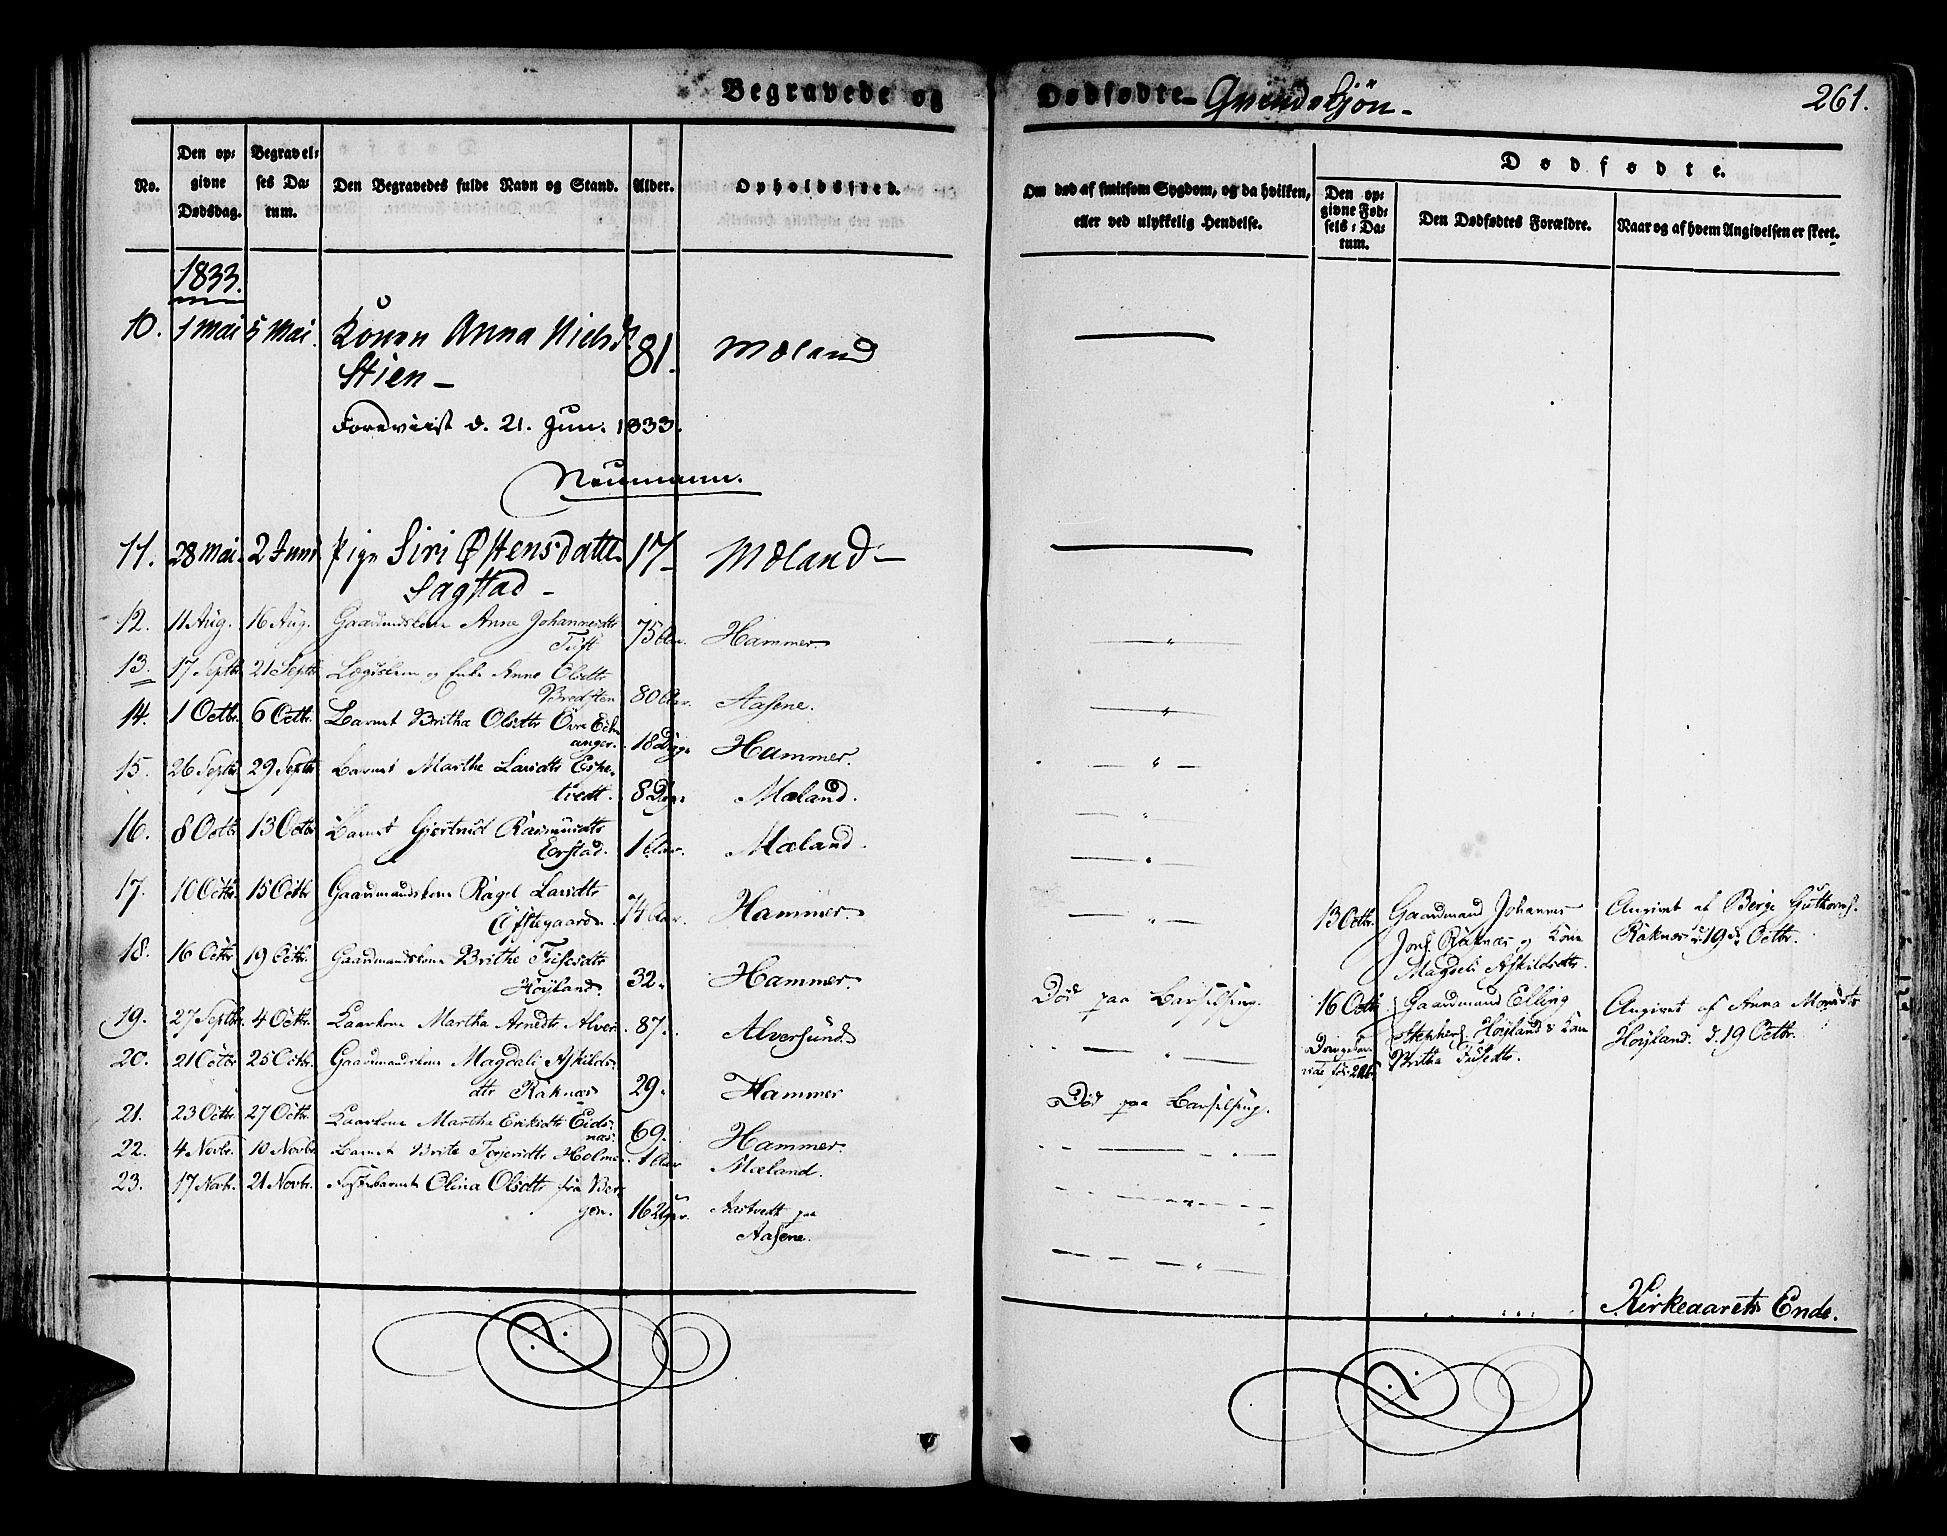 Begravede og Dødfødte - Qvindekjøn - 261.
No.
Den op:givne Dødsdag.
Begravel:ses Da:tum.
Den Begravedes fulde Navn og Stand.
Alder.
Opholdssted.
Om død af smitsom Sygdom, og da hvilken, eller ved ulykkelig Hendelse.
Dødfødte.
Den op:givne Fød:sels:Da:tum.
Den Dødfødtes Forældre.
Naar og af hvem Angivelsen er skeet.
1833.
10. 1 Mai 5 Mai. Konen Anna Nielsd. 81. Mæland
Stien -
Foreviist d. 21. Jun. 1833.
Neumann.
11. 28 Mai. 2 Juni Pige Siri Østensdatte 17 - Mæland -
Sagstad -
12. 11 Aug. 16 Aug. Gaardmdskone Anne Johannesdtr 75 Aar. Hammer.
Tuft
13. 17 Septbr 21 Septbr Lægdslem og Enke Anne Olsdtr
Bredsten 80 Aar. Aasene.
14. 1 Octbr. 6 Octbr. Barnet Britha Olsdtr Övre Eik
anger. 18 Dage Hammer.
15. 26 Septbr 29 Septbr Barnet Marthe Larsdtr Espe-
tvedt. 8 Dge Mæland.
16. 8 Octbr 13 Octbr Barnet Gjertrud Rasmusdtr
Eerstad. 1 Aar. Mæland.
17. 10 Octbr 15 Octbr. Gaardmandskone Ragel Larsdtr
Öfstegaard. 74 Aar. Hammer.
13 Octbr. Gaardmand Johannes
Jons. Räknæs og Kone
Magdeli Askildsdtr.
Angivet af Berge Guthorms.
Räknæs d. 19 Octbr.
18. 16 Octbr 19 Octbr. Gaardmandskone Brithe
Höyland. 32. Hammer.
Död paa Barselseng.
16 Octbr. Gaardmand Elling
Stephens. Höyland & Kone
Britha
Angivet af Anna Monsdtr
Höyland. d. 19 Octbr.
19. 27 Septbr. 4 Octbr. Kaarkone Martha Arnedtr Alver 87. Alversund.
20. 21 Octbr 25 Octbr. Gaardmandskone Magdeli Askilds-
dtr Räknæs 29. Hammer
Död paa Barselseng.
21. 23 Octbr. 27 Octbr. Kaarkone Martha Eriksdtr Eids:
næs. 69. Hammer.
22. 4 Novbr. 10 Novbr. Barnet Brite Torgersdtr Holme. 1 Aar Mæland.
23. 17 Novbr. 21 Novbr. Fosterbarnet Olina Olsdtr fra Ber
gen. 16 Uger. Aastvedt paa
Aasene.
Kirkeaarets Ende.